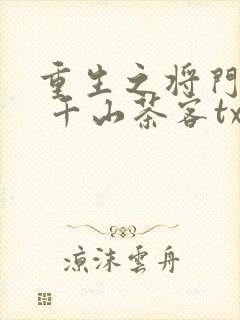 重生之将門
千山茶客tx
凉沫雲舟